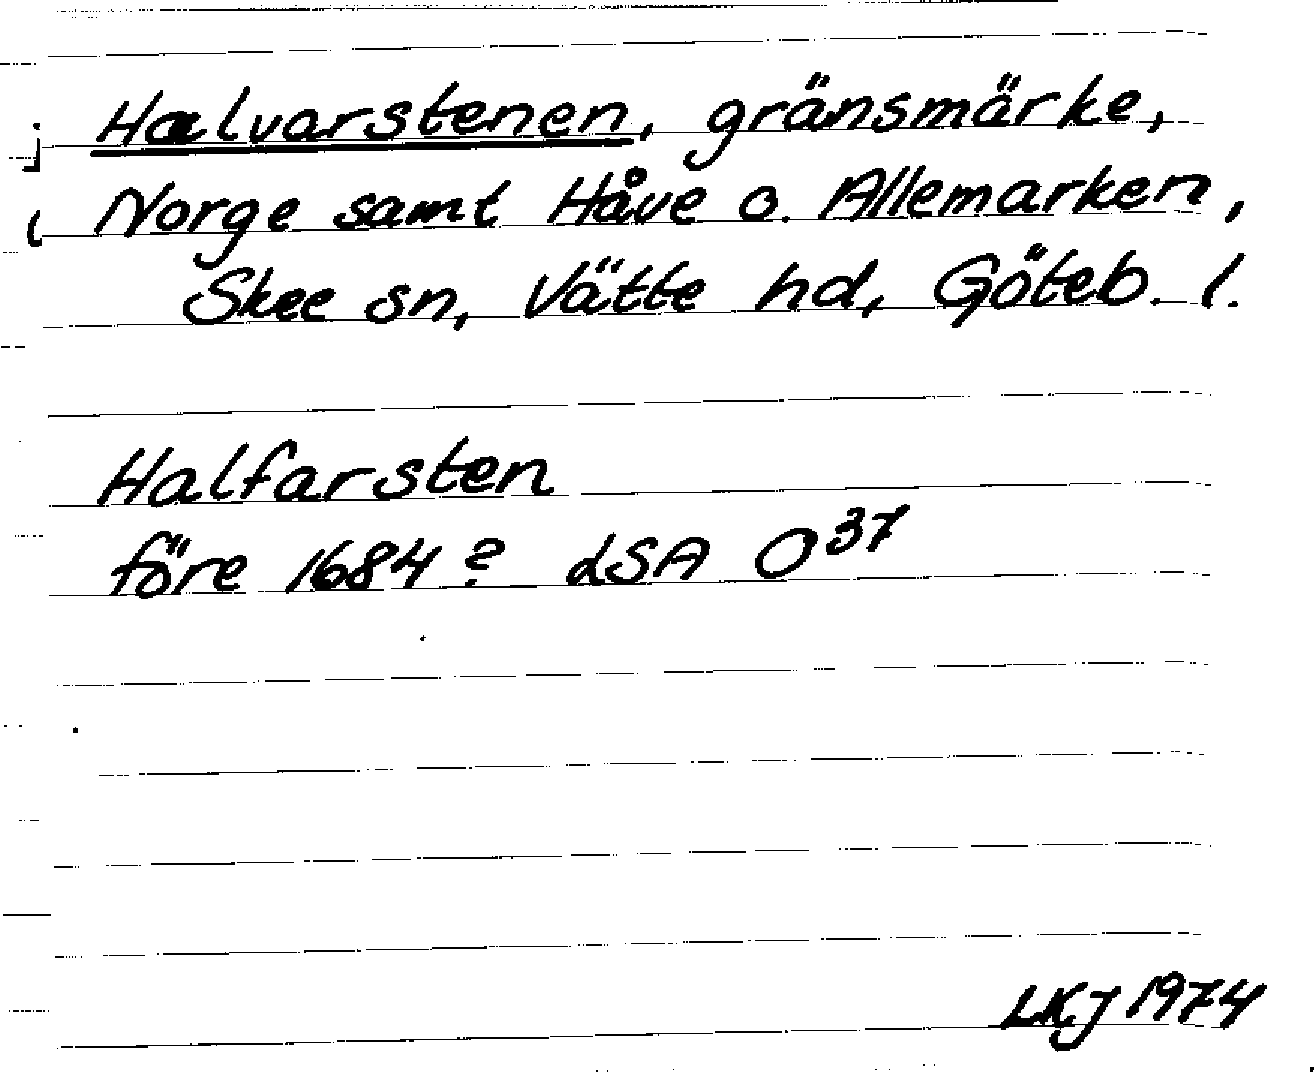 Halvarstenen, gränsmärke,
Norge samt Håve o. Allemarken,
Skee sn, Vätte hd, Göteb. l.
Halfarsten
före 1684? LSA O37
LKJ 1974